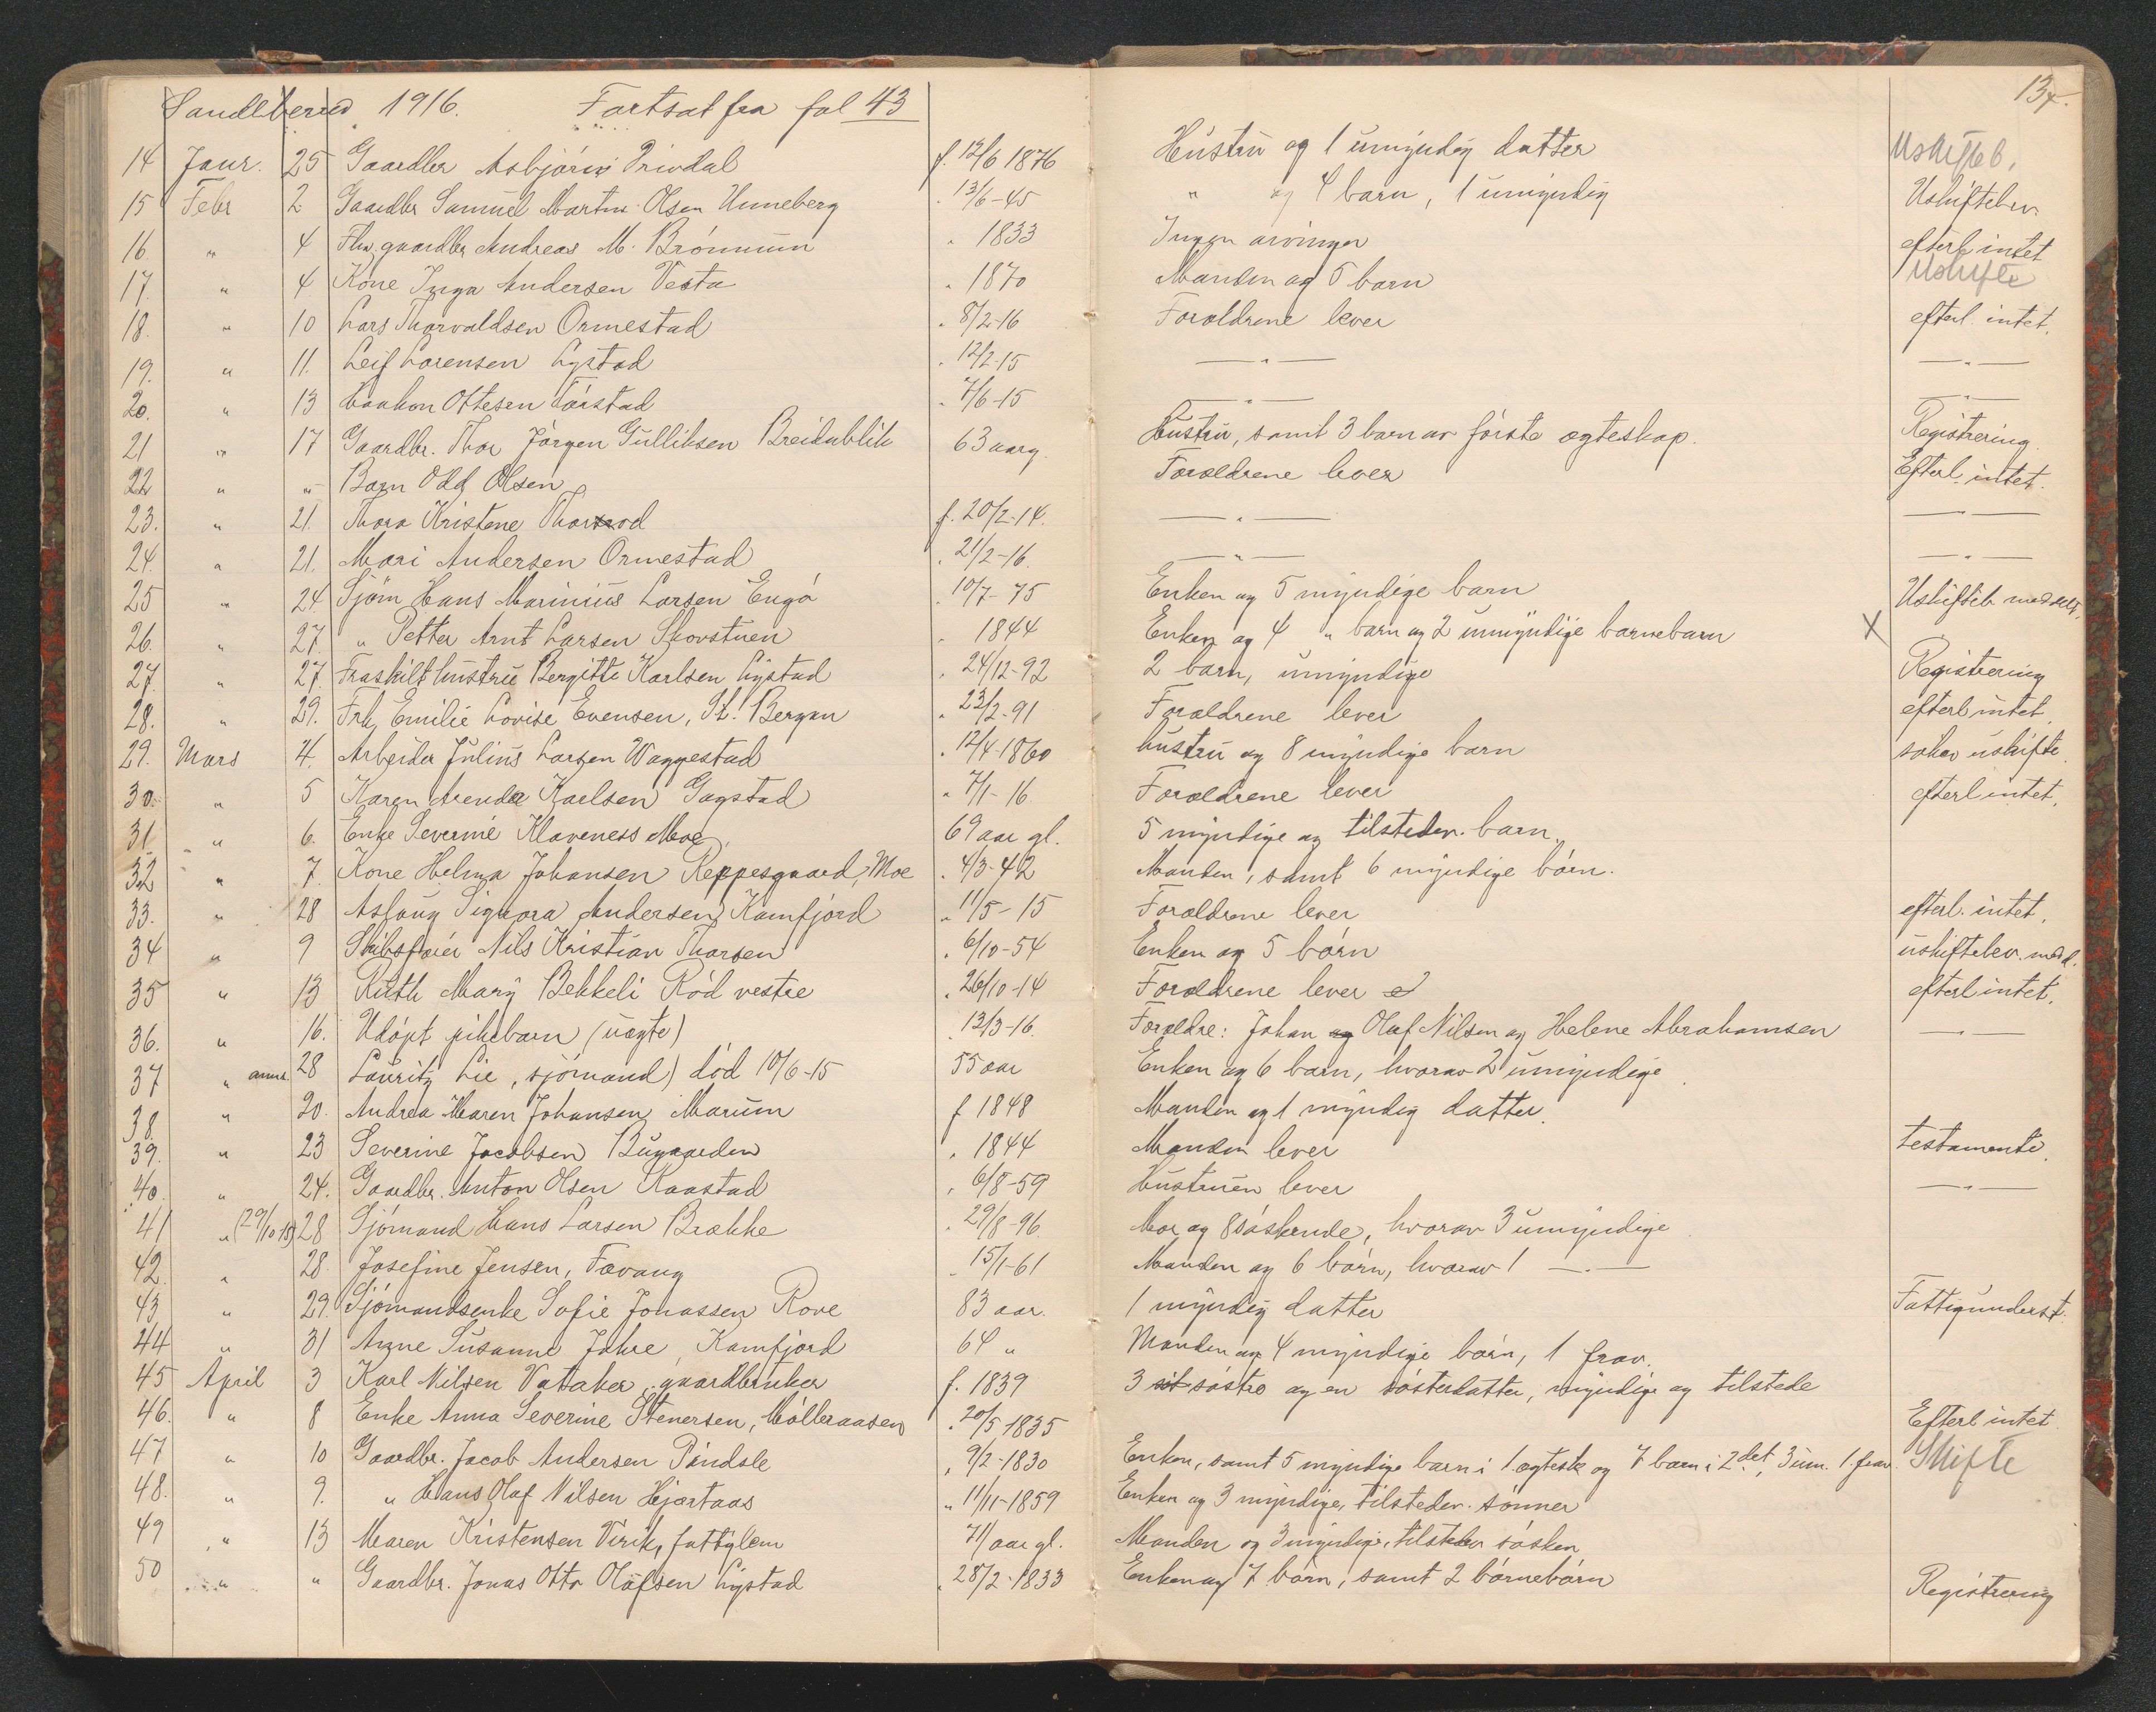 134.
Sandeherred 1916. Fortsat fra fol 43
14 Janr. 25 Gaardbr Asbjörn Privdal f. 12/6 1876 Hustru og 1 umyndig datter Uskifteb.
15 Febr 2 Gaardbr Samuel Martin Olsen Unneberg " 13/6-45 " og 4 barn, 1 umyndig Uskiftebev.
16. " 4 Fhv. gaardbr Andreas M. Brónnum " 1833 Ingen arvinger efterl. intet
17. " 4 Kone Inga Andersen Vesta " 1870 Manden og 5 barn Uskifte
18. " 10 Lars Thorvaldsen Ormestad " 8/2-16 Forældrene lever efterl. intet.
19. " 11. Leif Lorensen Lystad " 12/2-15 — " — — " —
20. " 13 Haakon Ottesen Tórstad " 7/6-15 — " — — " —
21 " 17 Gaardbr. Thor Jörgen Gulliksen Breidablik 63 aarg. Hustru, samt 3 barn av förste ægteskap. Registrering
22 " " Barn Odd Olsen Forældrene lever Efterl. intet.
23. " 21. Thora Kristene Thorsrod f. 20/2-14. — " — — " —
24. " 21. Mari Andersen Ormestad " 21/2-16. — " — — " —
25 " 24. Sjöm Hans Marinius Larsen Engó " 10/7-75 Enken og 5 myndige barn Uskifteb. meddelt.
26. " 27. " Petter Arnt Larsen Skovstuen " 1844 Enken og 4 " barn og 2 umyndige barnebarn X
27. " 27. Fraskilt hustru Bergitte Karlsen Lystad " 24/12-92 2 barn, umyndige Registrering
28. " 29. Frk. Emilie Lovise Evensen, St. Bergan " 23/2-91 Forældrene lever efterl intet.
29. Mars 4. Arbeider Julius Larsen Waggestad " 12/4-1860 hustru og 8 myndige barn söker uskifte.
30. " 5 Karen Arenda Karlsen Gogstad " 7/1-16 Forældrene lever efterl intet.
31. " 6. Enke Severine Klaveness Moe 69 aar gl. 5 myndige og tilstedev. barn.
32 " 7. Kone Helma Johansen Reppesgaard, Moe " 4/3-42 Manden, samt 6 myndige börn.
33. " 28 Aslaug Signora Andersen Kamfjord " 11/5-15 Forældrene lever efterl. intet.
34 " 9 Skibsförer Nils Kristian Thorsen " 6/10-54 Enken og 5 börn uskiftebev. medd.
35 " 13 Ruth Mary Bekkeli Röd vestre " 26/10-14 Forældrene lever efterl intet.
36. " 16. Udöpt pikebarn (uægte) " 13/3-16. Forældre: Johan og Olaf Nilsen og Helene Abrahamsen — " —
37 " anm. 28 Lauritz Lie, sjömand) död 10/6-15 55 aar Enken og 6 barn, hvorav 2 umyndige
38. " 20. Andrea Maren Johansen Marum f 1848 Manden og 1 myndig datter.
39. " 23 Severine Jacobsen Bugaarden " 1844 Manden lever testamente.
40. " 24. Gaardbr. Anton Olsen Raastad " 6/8-59 Hustruen lever — " —
41 " (29/10 15) 28 Sjömand Hans Larsen Brekke " 29/8-96 Mor og 8 söskende, hvorav 3 umyndige
42. " 28. Josefine Jensen, Tavang " 15/1-61 Manden og 6 börn, hvorav 1 — " —
43 " 29. Sjömandsenke Sofie Jonassen Rove 83 aar. 1 myndig datter Fattigunderst.
44 " 31 Anne Susanne Jahre, Kamfjord 64 " Manden og 4 myndige börn, 1 frav.
45 April 3 Karl Nilsen Vataker, gaardbruker f. 1839 3 söstre og en sösterdatter, myndige og tilstede
46. " 8 Enke Anna Severine Stenersen, Mölleraasen " 20/5 1835 Efterl intet.
47 " 10 Gaardbr. Jacob Andersen Pindsle " 9/2-1830 Enken, samt 5 myndige barn i 1. ægtesk og 7 barn i 2det, 3 um. 1. frav. Skifte
48. " 9. " Hans Olaf Nilsen Hjertaas " 11/11-1859 Enken og 3 myndige, tilstedev. sönner
49 " 13 Maren Kristensen Virik, fattiglem 71 aar gl. Manden og 3 myndige, tilstedev sösken
50 " " Gaardbr. Jonas Otto Olafsen Lystad " 28/2-1833 Enken og 7 börn, samt 2 börnebörn Registrering